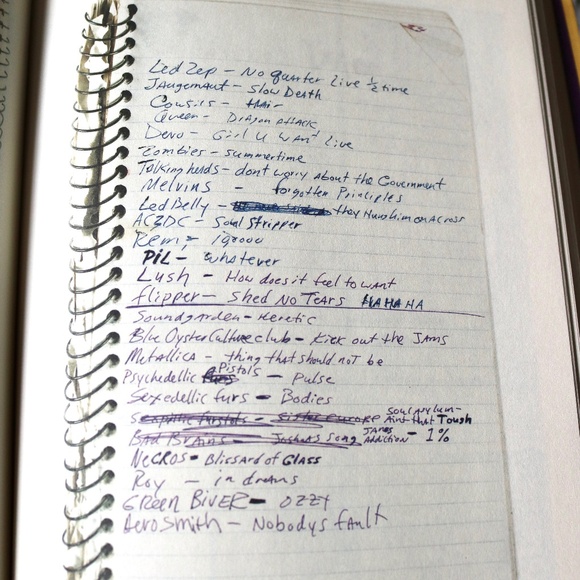 Led Zep - No quarter Live ½ time
JAugernaut - Slow Death
Cowsils - Hair
Queen - Dragon Attack
Devo - Girl U WANT Live
Zombies - summertime
Talking heads - dont worry About the Government
Melvins - forgotten Principles
Led Belly - they Hung him on A cross
ACDC - Soul Stripper
Rem -
PiL - whatever
Lush - How does it feel to want
flipper - Shed No Tears HA HA HA
Soundgarden - Heretic
Blue Oyster Culture club - Kick out the JAMS
Metallica - thing that should not be
Psychedellic Pistols - Pulse
Sexedellic furs - Bodies
Sister Europe Soul Asylum - Aint that Tough
Bad Brains - Joshuas Song JANES Addiction - 1%
NeCROS - Blissard of Glass
Roy - in dreams
GREEN RIVER - OZZY
AeroSmith - Nobodys fault